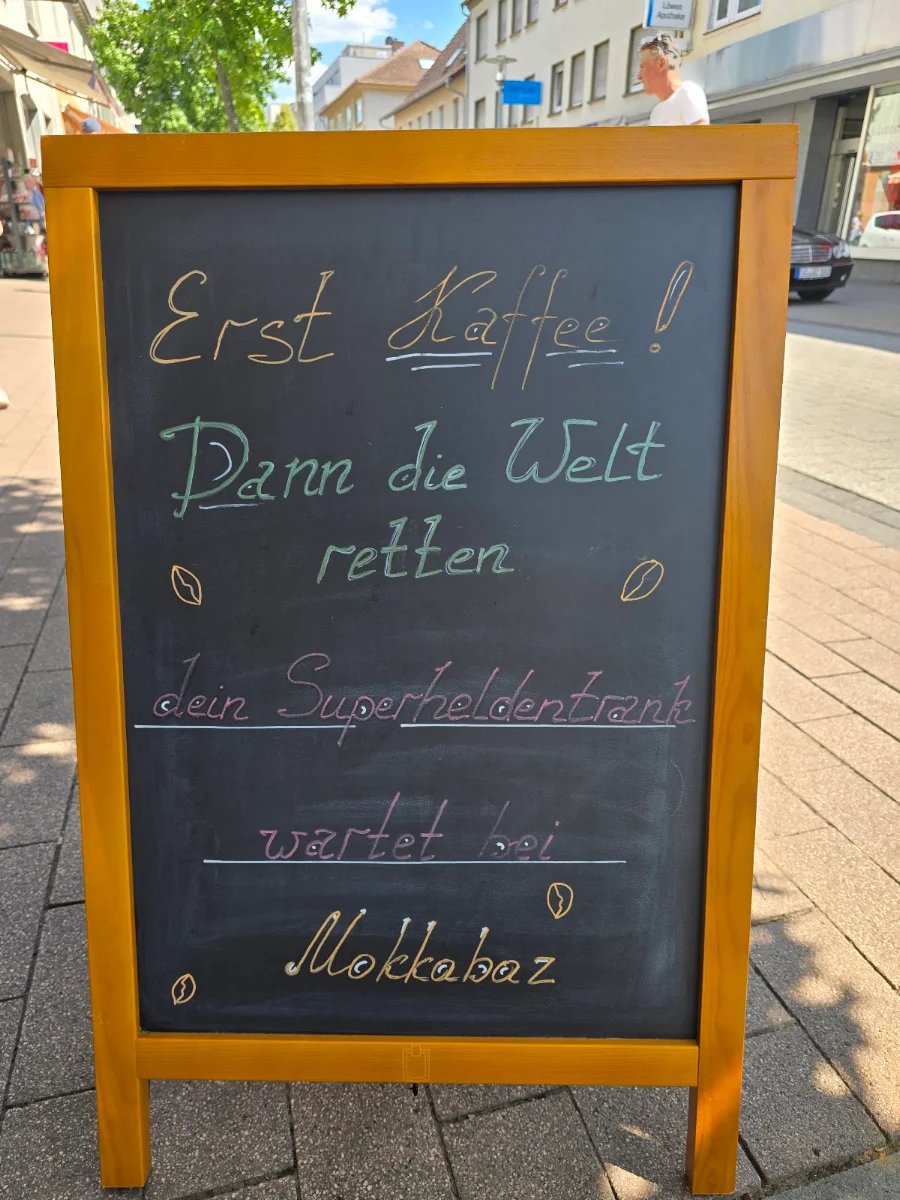 Löwen
Apotheke
Erst Kaffee!
Dann die Welt
retten
dein Superheldentrank
wartet bei
Mokkabaz